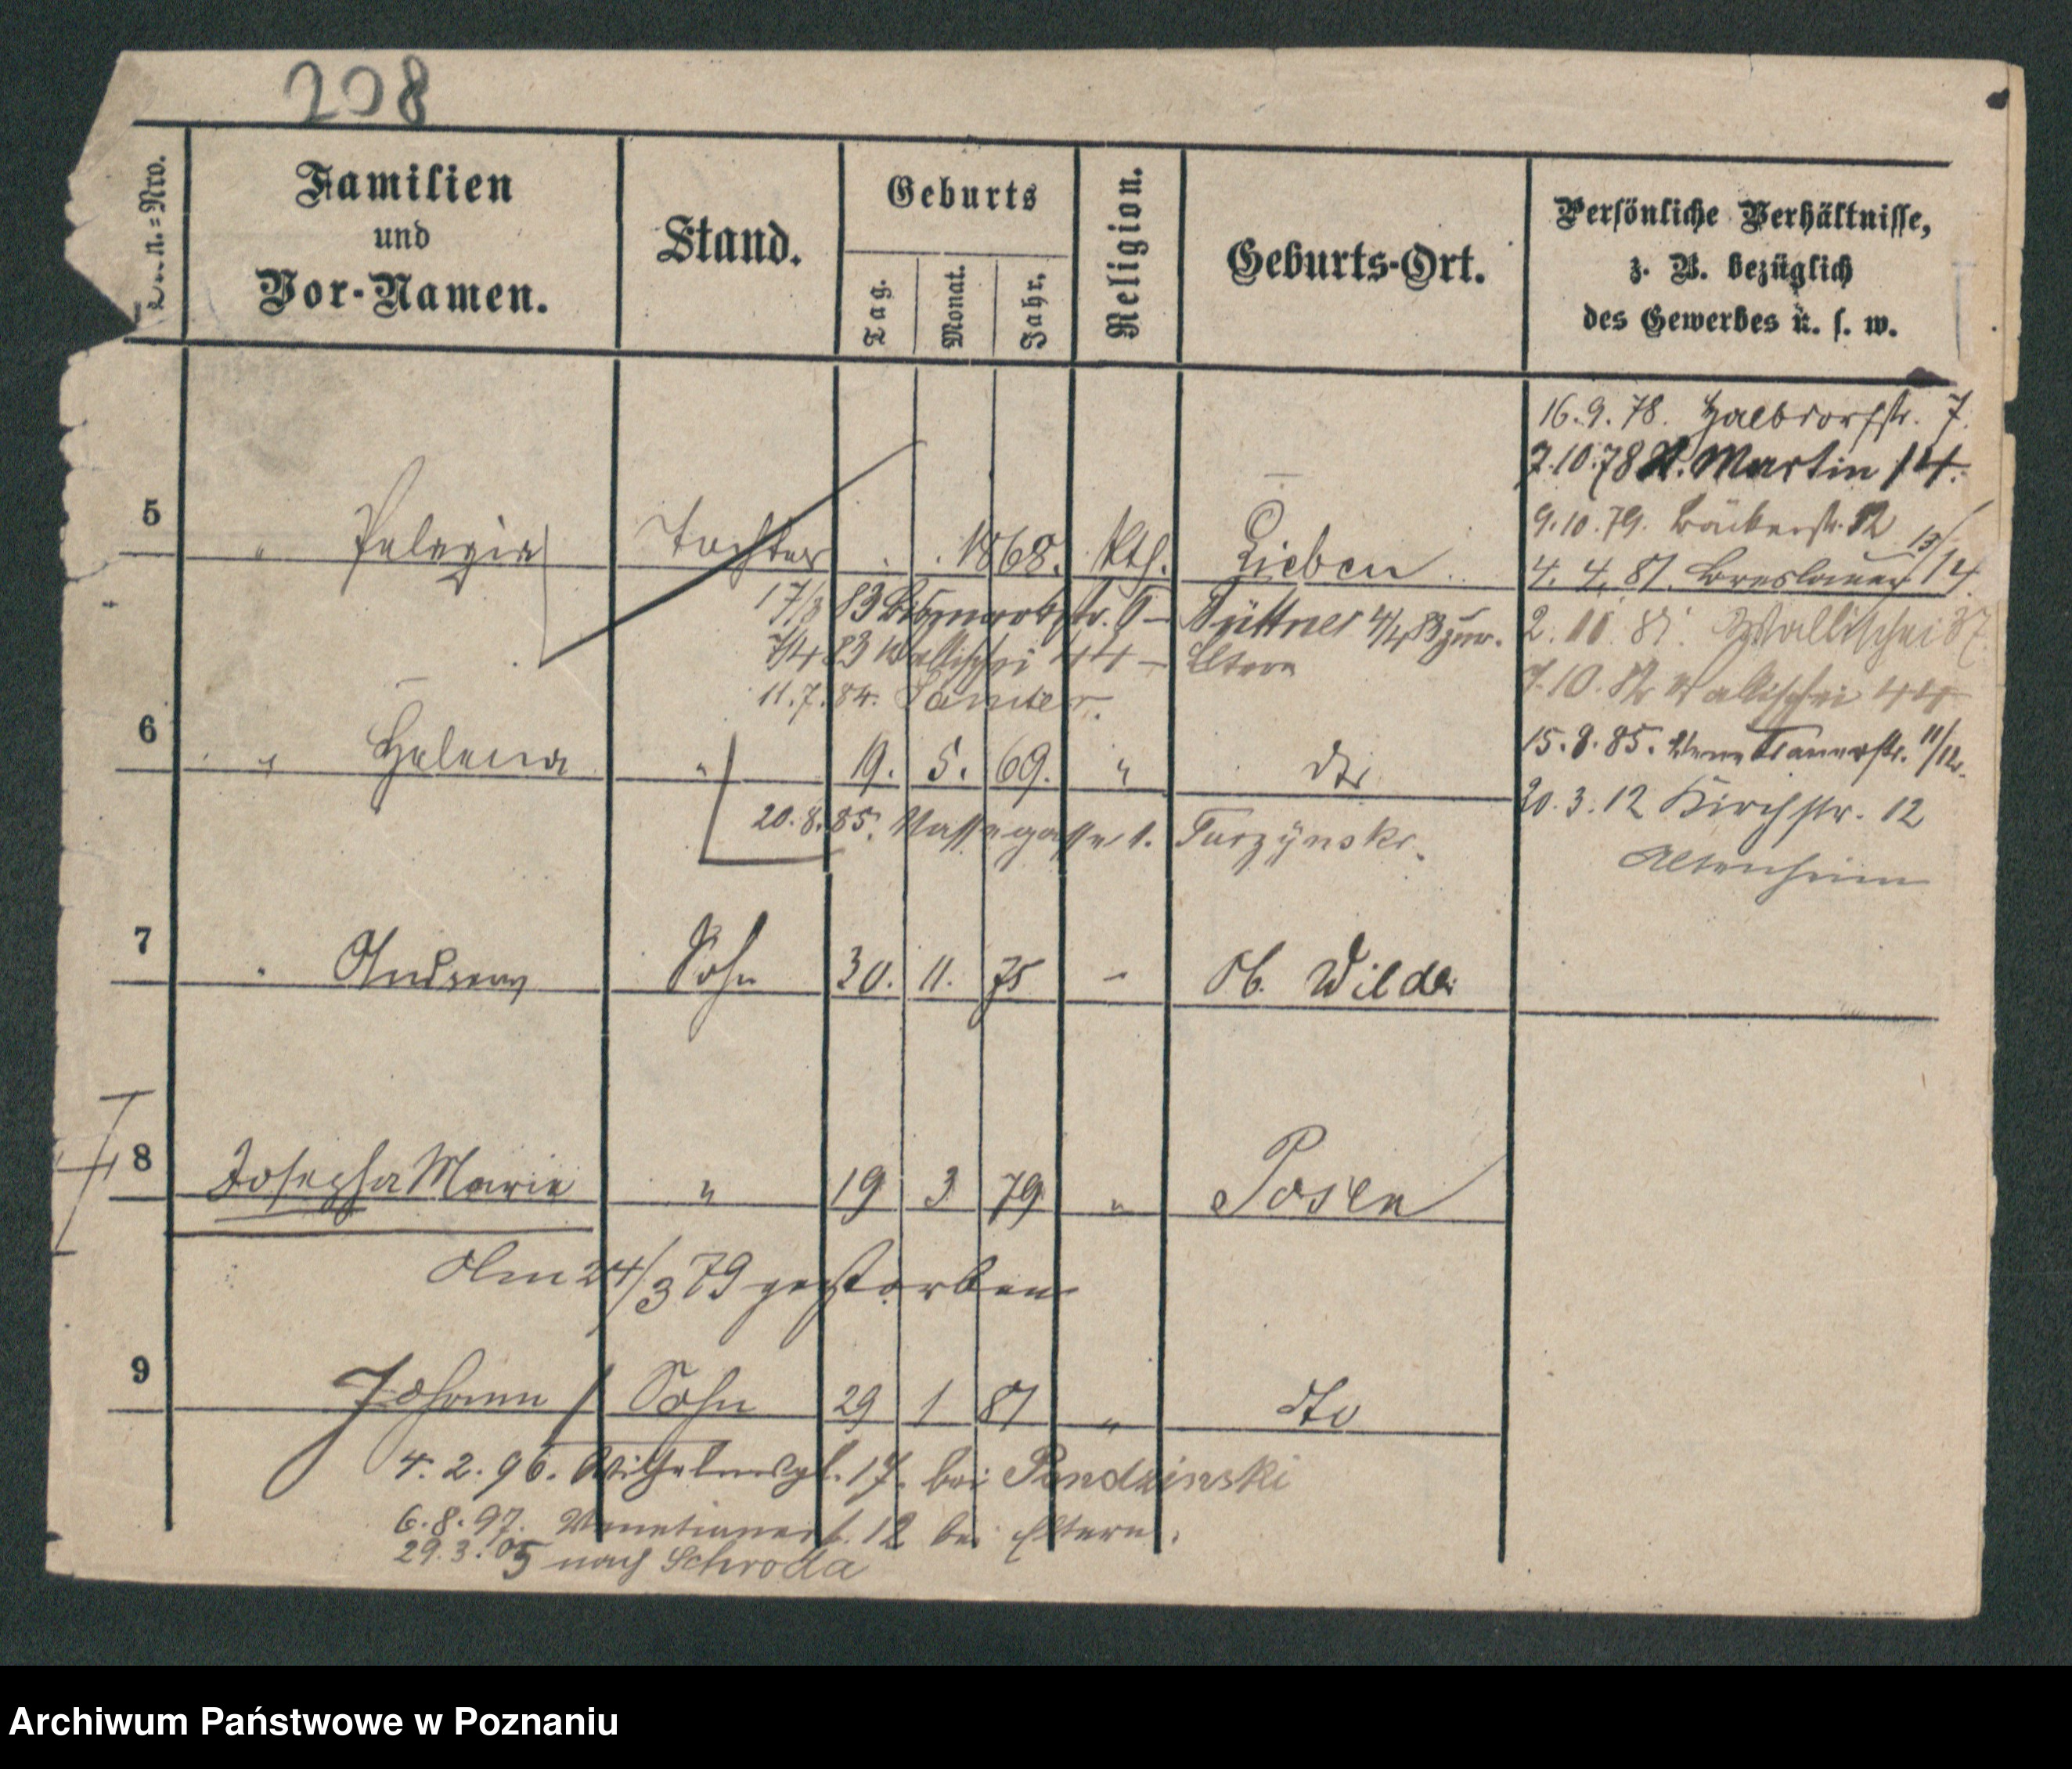 208
Nro.
Familien
und
Vor-Namen.
Stand.
Geburts
Tag.
Monat.
Jahr.
Religion.
Geburts-Ort.
Persönliche Verhältnisse,
z. B. bezüglich
des Gewerbes u. s. w.
16.9.78. Halbdorfstr. 7.
7.10.78 St. Martin 14.
9.10.79. Bäckerstr. 12
4. 4. 81. Breslauer 13/14
2. 81. Wallischei 37
7.10. 82 Wallischei 44
15.8.85. Venetianerstr. 11/12.
20.3.12 Kirchstr. 12
Altenheim
5 " Pelagia Tochter 1868. Kth. Lieben
83 Bismarckstr. 9 – Büttner 4/4 83 zur.
7/4 83 Wallischei 44 – Eltern
11.7.84. Samter.
6 " Helena " 19. 5. 69. " dto
20.8.85. Nassegasse 1. Turzynski.
7 " Andreas Sohn 30. 11. 75 – Ob. Wilda
8 Josepha Marie " 19 3 79 " Posen
Am 24/3 79 gestorben
9 Johann Sohn 29 1 81 " dto
4.2.96. Wilhelmspl. 17. bei Pendzinski
6.8.97. Venetianerst. 12 bei Eltern.
29.3.05 nach Schroda
Archiwum Państwowe w Poznaniu